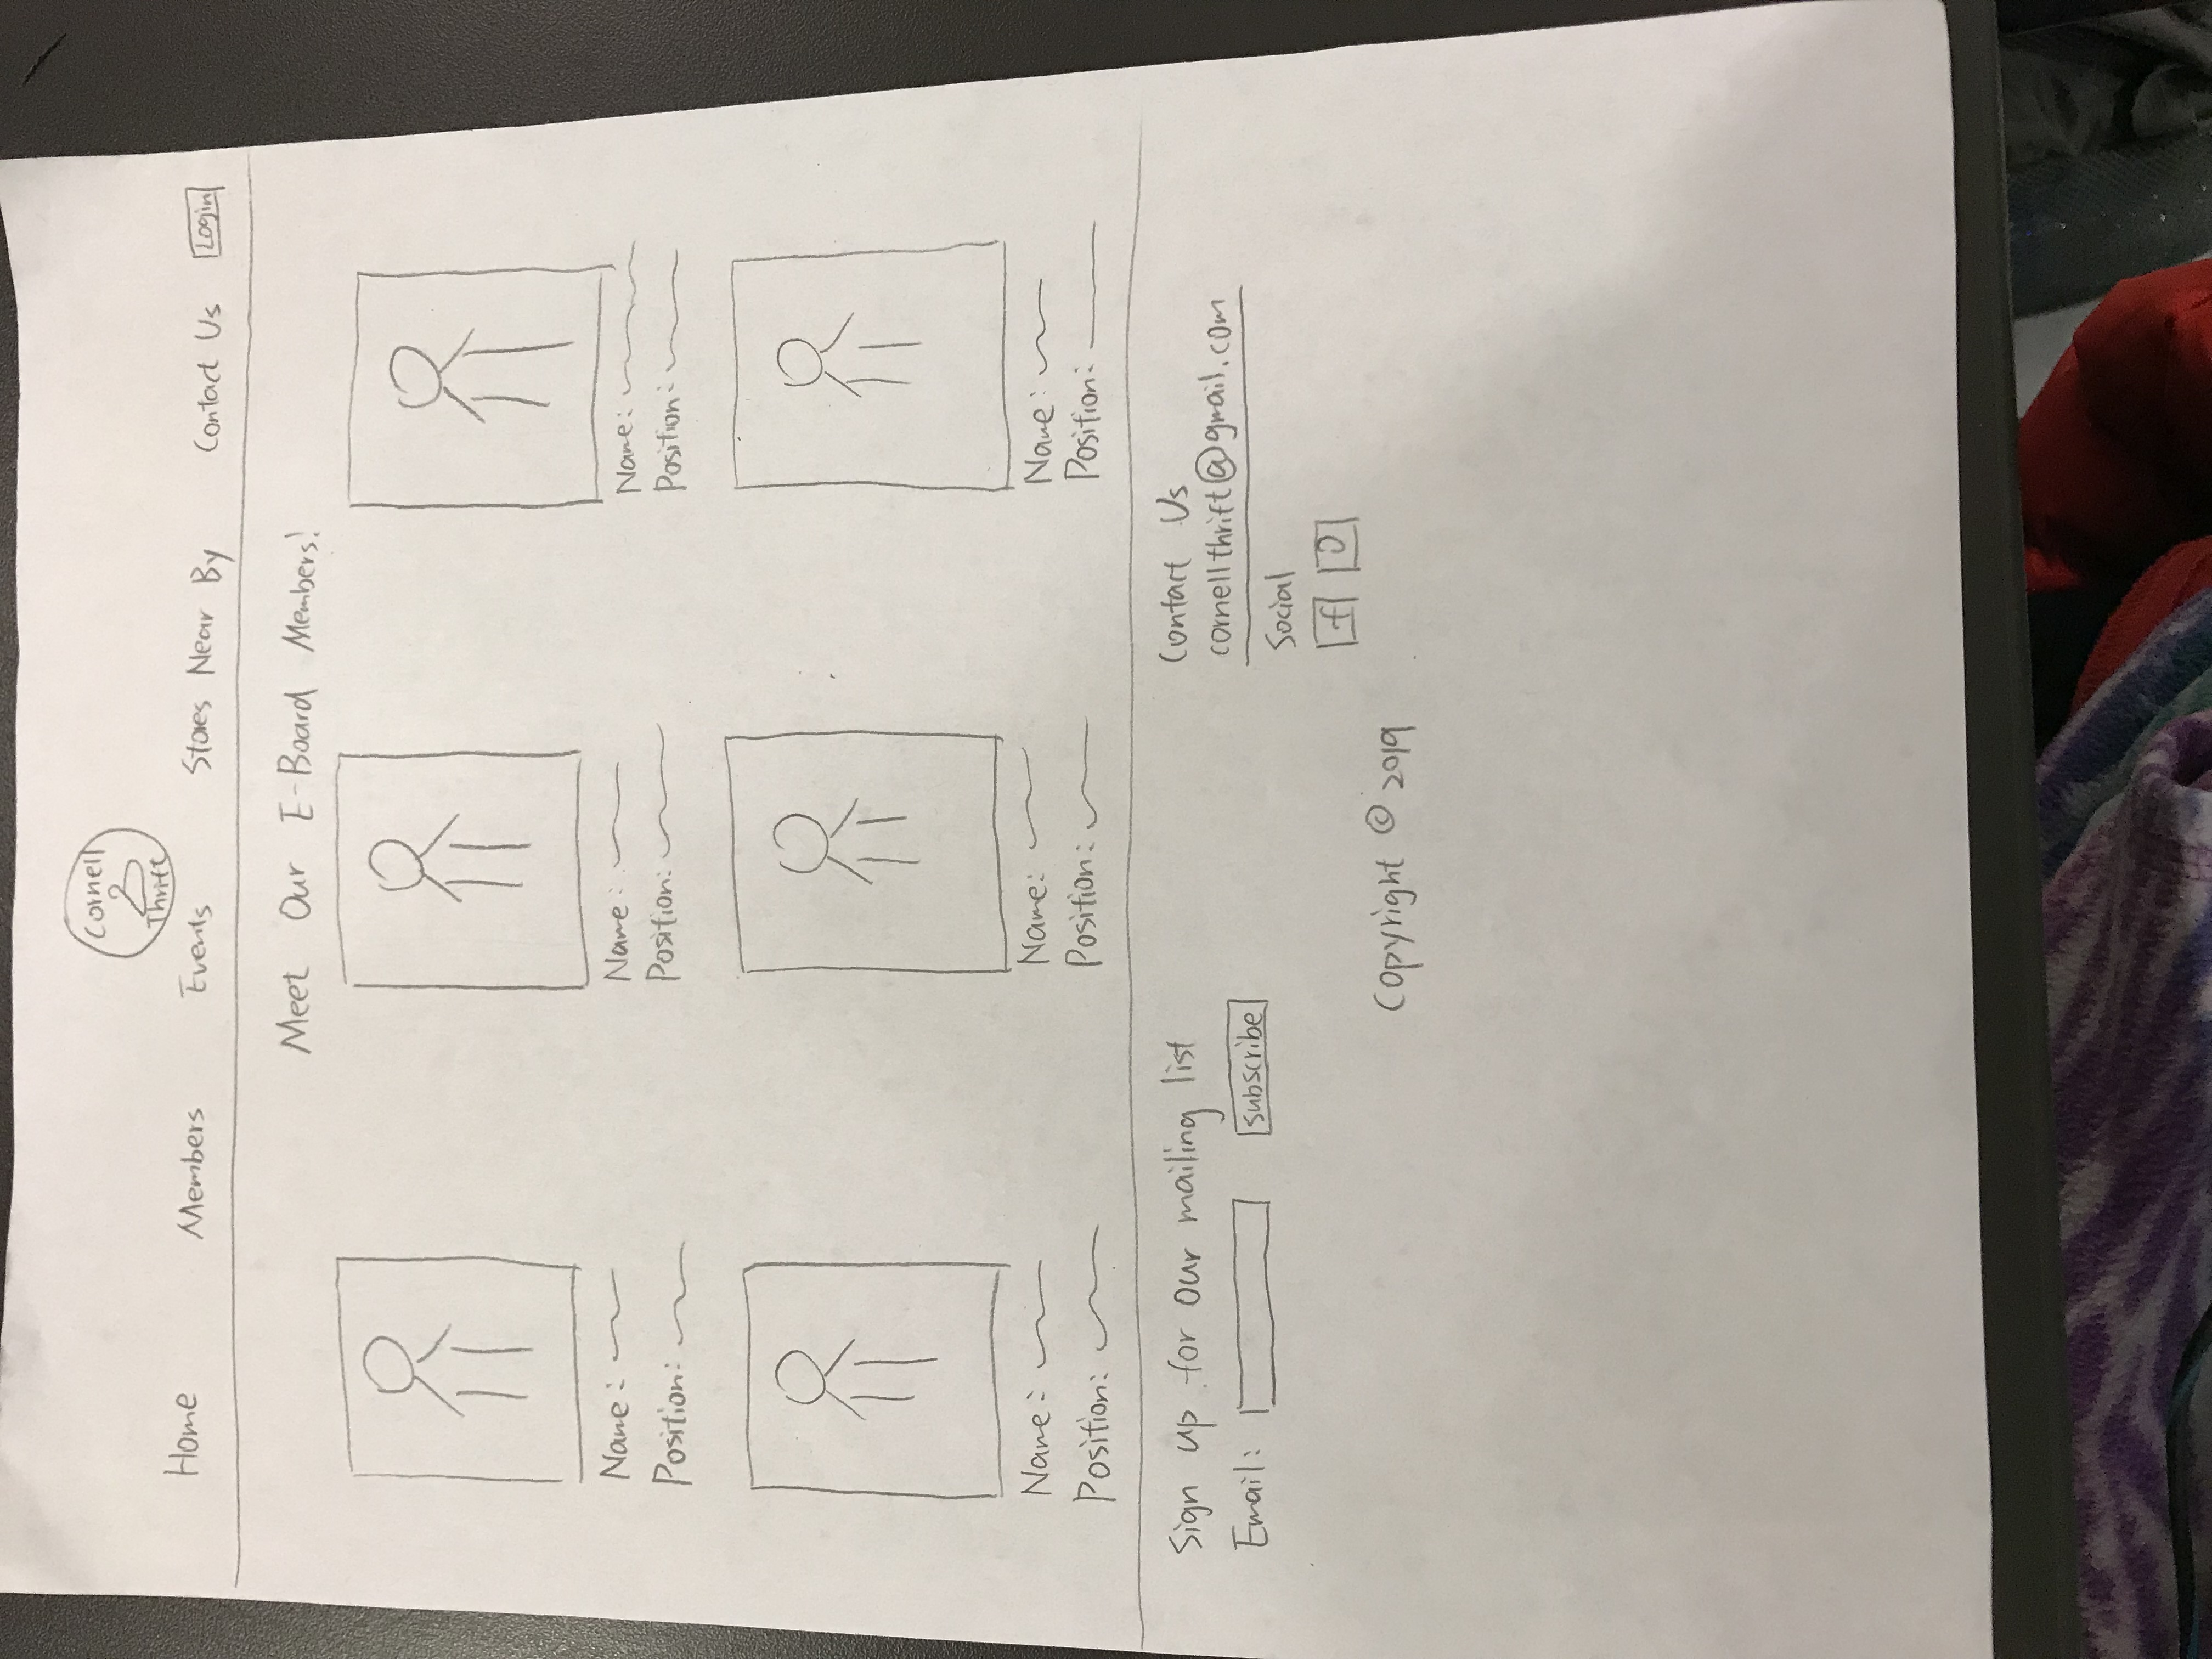 Cornell
Thrift
Home Members Events Stores Near By Contact Us Login
Meet Our E-Board Members!
Name: Name: Name:
Position: Position: Position:
Name: Name: Name:
Position: Position: Position:
Sign up for our mailing list
Email: subscribe
Contact Us
cornellthrift@gmail.com
Social
f
Copyright © 2019